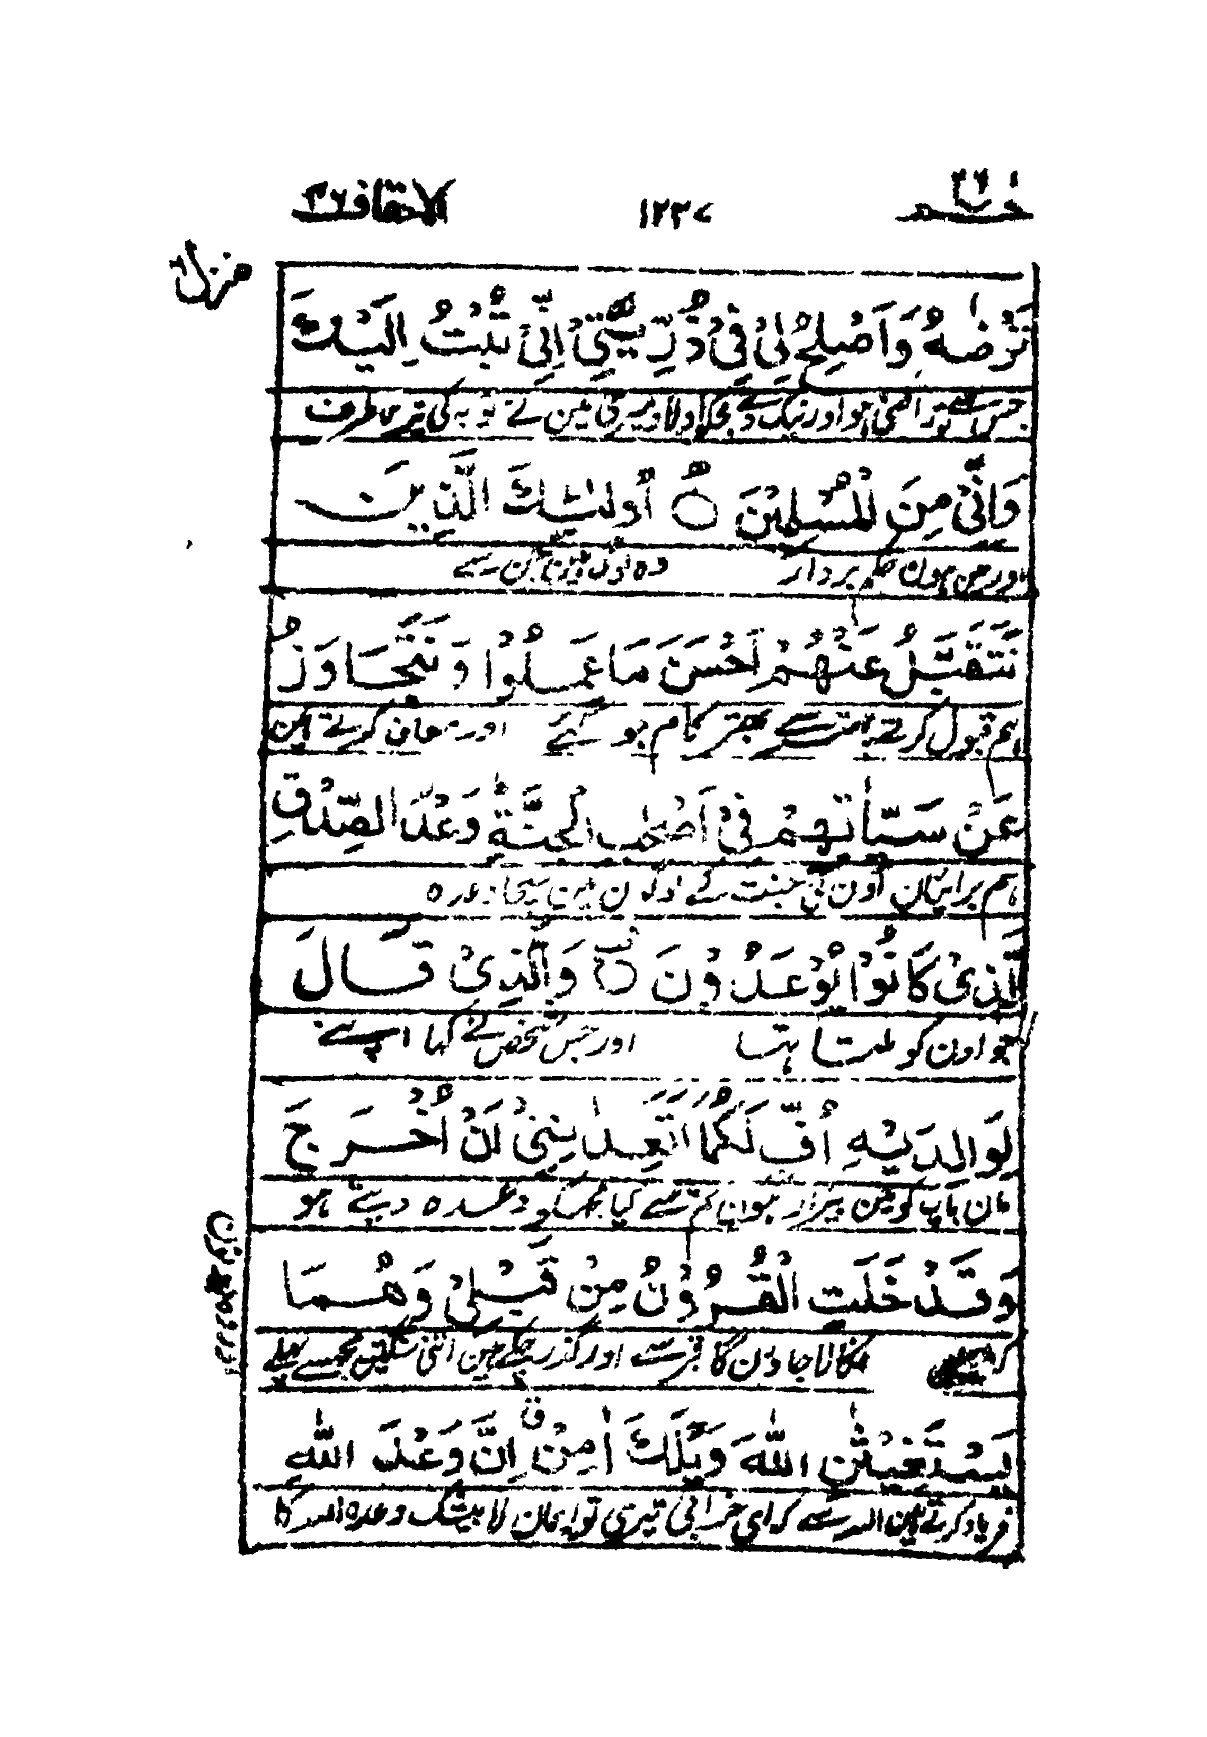 حٰم ٢٦
١٢٣٧
الاحقاف ٤٦
منزل
تَرْضٰهُ وَاَصْلِحْ لِيْ فِيْ ذُرِّيَّتِيْ اِنِّيْ تُبْتُ اِلَيْكَ
جس سے تو راضی ہو اور نیک دے مجکو اولاد میری مین نے توبہ کی تیری طرف
وَاِنِّيْ مِنَ الْمُسْلِمِيْنَ ○ اُولٰٓئِكَ الَّذِيْنَ
اور مین ہون حکم بردار وہ لوگ ہین جن سے
نَتَقَبَّلُ عَنْهُمْ اَحْسَنَ مَا عَمِلُوْا وَنَتَجَاوَزُ
ہم قبول کرتے بہتر سے بہتر کام جو کئے اور معاف کرتے ہین
عَنْ سَيِّاٰتِهِمْ فِيْ اَصْحٰبِ الْجَنَّةِ وَعْدَ الصِّدْقِ
ہم برائیان اون کی جنت کے لوگون مین سچا وعدہ
الَّذِيْ كَانُوْا يُوْعَدُوْنَ ○ وَالَّذِيْ قَالَ
جو اون کو ملتا تہا اور جس شخص نے کہا اپنے
لِوَالِدَيْهِ اُفٍّ لَّكُمَا اَتَعِدٰنِنِيْ اَنْ اُخْرَجَ
مان باپ کو مین بیزار ہون تم سے کیا مجھکو وعدہ دیتے ہو
وَقَدْ خَلَتِ الْقُرُوْنُ مِنْ قَبْلِيْ وَهُمَا
کہ نکالا جاؤن گا قبر سے اور گذر چکے ہین اتنی سنگتین مجھسے پہلے
يَسْتَغِيْثٰنِ اللّٰهَ وَيْلَكَ اٰمِنْ اِنَّ وَعْدَ اللّٰهِ
فریاد کرتے ہین اللہ سے کہ ای خرابی تیری تو ایمان لا بیشک وعدہ اللہ کا